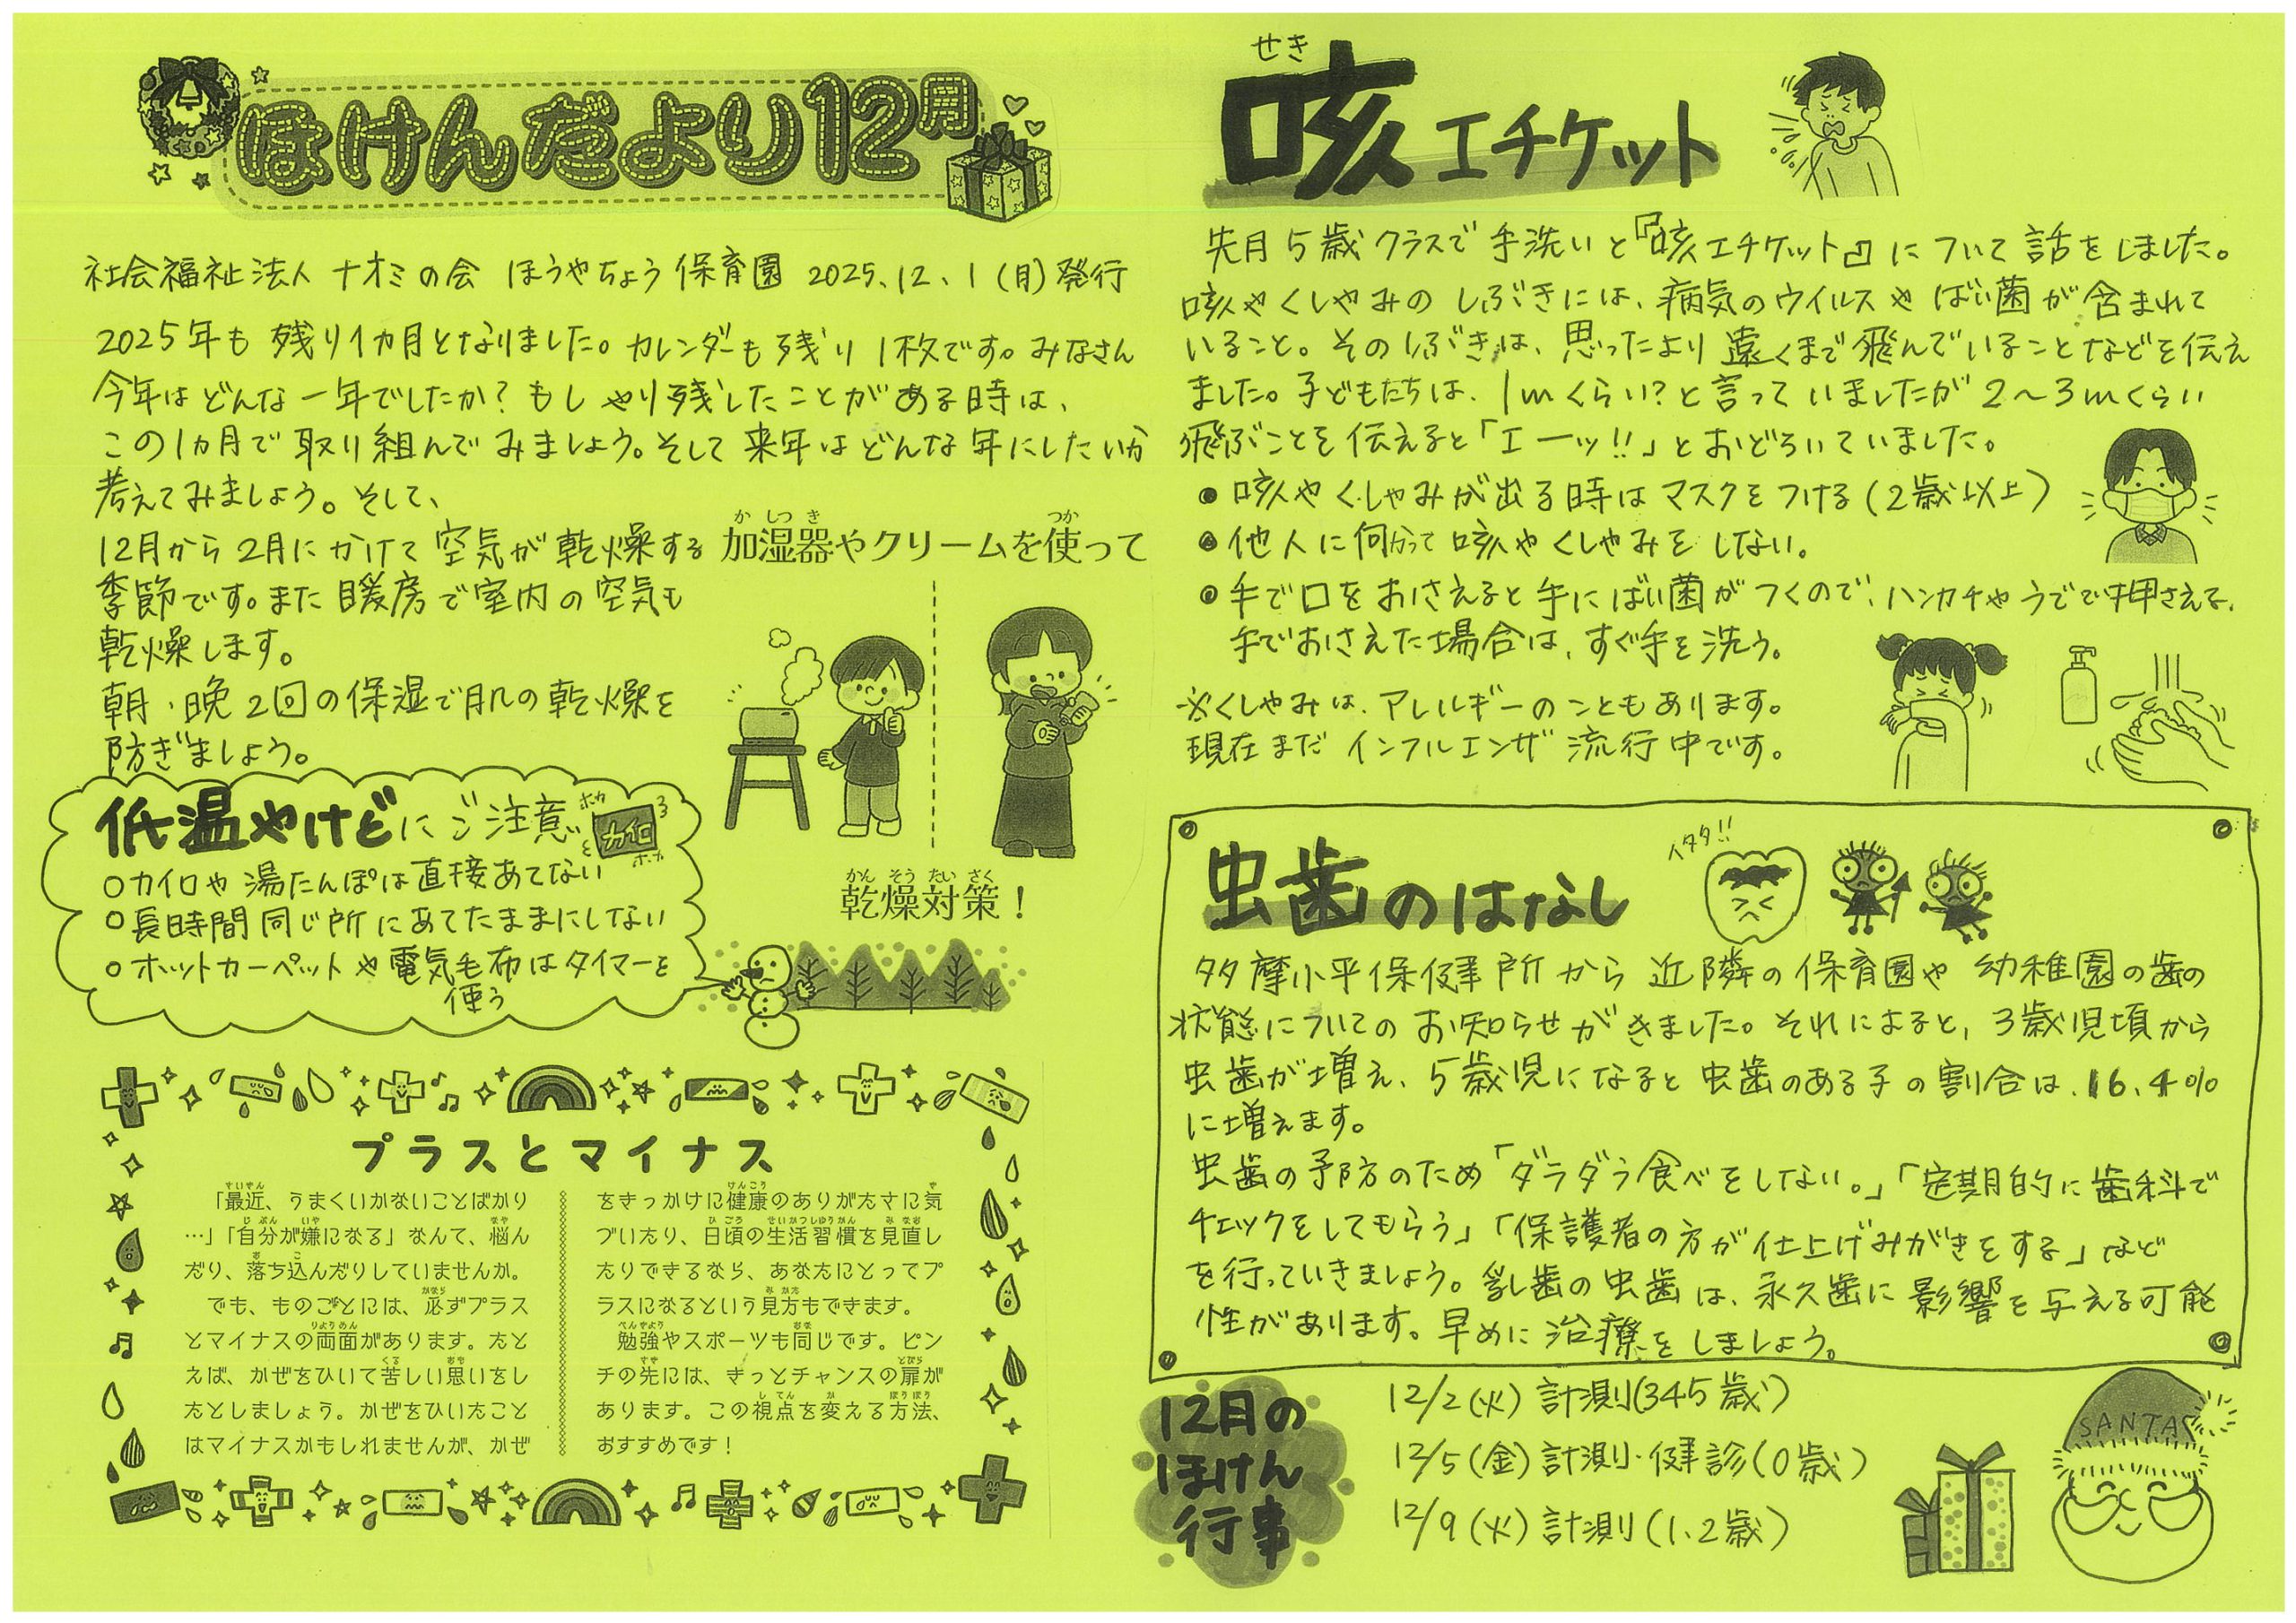 ほけんだより12月
社会福祉法人 ナオミの会 ほうやちょう保育園 2025.12.1(月)発行
2025年も残り1カ月となりました。カレンダーも残り1枚です。みなさん
今年はどんな一年でしたか?もしやり残したことがある時は、
この1カ月で取り組んでみましょう。そして来年はどんな年にしたいか
考えてみましょう。そして、
12月から2月にかけて空気が乾燥する
季節です。また暖房で室内の空気も
乾燥します。
朝・晩2回の保湿で肌の乾燥を
防ぎましょう。
かしつき つか
加湿器やクリームを使って
かんそうたいさく
乾燥対策!
低温やけどにご注意
ホカ
カイロ
ホカ
○カイロや湯たんぽは直接あてない
○長時間同じ所にあてたままにしない
○ホットカーペットや電気毛布はタイマーを
使う
プラスとマイナス
さいきん
「最近、うまくいかないことばかり
じぶん いや なや
…」「自分が嫌になる」なんて、悩ん
お こ
だり、落ち込んだりしていませんか。
かなら
でも、ものごとには、必ずプラス
りょうめん
とマイナスの両面があります。たと
くる おも
えば、かぜをひいて苦しい思いをし
たとしましょう。かぜをひいたこと
はマイナスかもしれませんが、かぜ
けんこう き
をきっかけに健康のありがたさに気
ひごろ せいかつしゅうかん みなお
づいたり、日頃の生活習慣を見直し
たりできるなら、あなたにとってプ
みかた
ラスになるという見方もできます。
べんきょう おな
勉強やスポーツも同じです。ピン
さき とびら
チの先には、きっとチャンスの扉が
してん か ほうほう
あります。この視点を変える方法、
おすすめです!
せき
咳エチケット
先月5歳クラスで手洗いと『咳エチケット』について話をしました。
咳やくしゃみのしぶきには、病気のウイルスやばい菌が含まれて
いること。そのしぶきは、思ったより遠くまで飛んでいることなどを伝え
ました。子どもたちは、1mくらい?と言っていましたが2〜3mくらい
飛ぶことを伝えると「エーッ!!」とおどろいていました。
●咳やくしゃみが出る時はマスクをつける(2歳以上)
●他人に向かって咳やくしゃみをしない。
●手で口をおさえると手にばい菌がつくので、ハンカチやうでで押さえる。
手でおさえた場合は、すぐ手を洗う。
※くしゃみは、アレルギーのこともあります。
現在まだインフルエンザ流行中です。
虫歯のはなし
イタタ!!
多摩小平保健所から近隣の保育園や幼稚園の歯の
状態についてのお知らせがきました。それによると、3歳児頃から
虫歯が増え、5歳児になると虫歯のある子の割合は、16.4%
に増えます。
虫歯の予防のため「ダラダラ食べをしない。」「定期的に歯科で
チェックをしてもらう」「保護者の方が仕上げみがきをする」など
を行っていきましょう。乳歯の虫歯は、永久歯に影響を与える可能
性があります。早めに治療をしましょう。
12月の
ほけん
行事
12/2(火)計測(345歳)
12/5(金)計測・健診(0歳)
12/9(火)計測(1.2歳)
SANTA